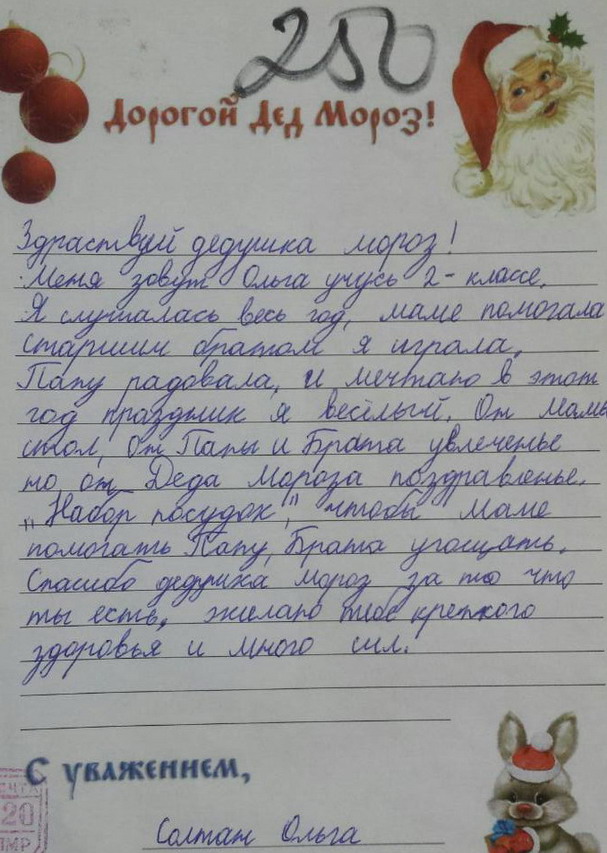 250
Дорогой Дед Мороз!
Здраствуй дедушка мороз!
Меня зовут Ольга учусь 2-классе.
Я слушалась весь год, маме помогала
старшим братом я играла.
Папу радовала, и мечтаю в этот
год праздник я весёлый. От мамы
стол, от Папы и Брата увлеченье
но от Деда Мороза поздравленье.
„Набор посудок," чтобы маме
помогать Папу, Брата угощать.
Спасибо дедушка мороз за то что
ты есть. жилаю тебе крепкого
здоровья и много сил.
С уважением,
20
ПМР
Солтан Ольга